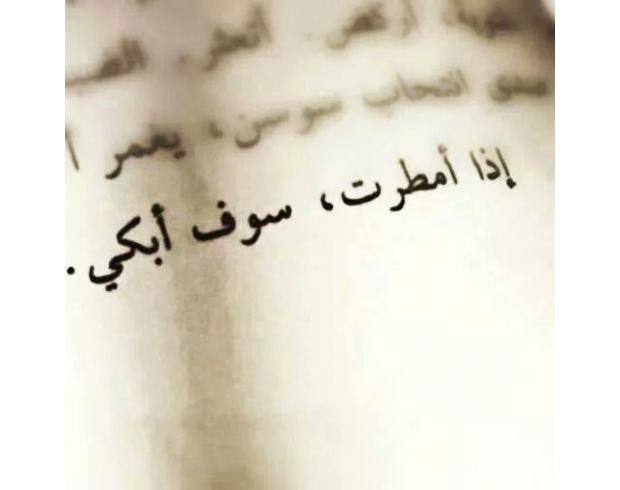 أركض. أتعثر.
صدى انتحاب سوسن، يغمر
إذا أمطرت، سوف أبكي.